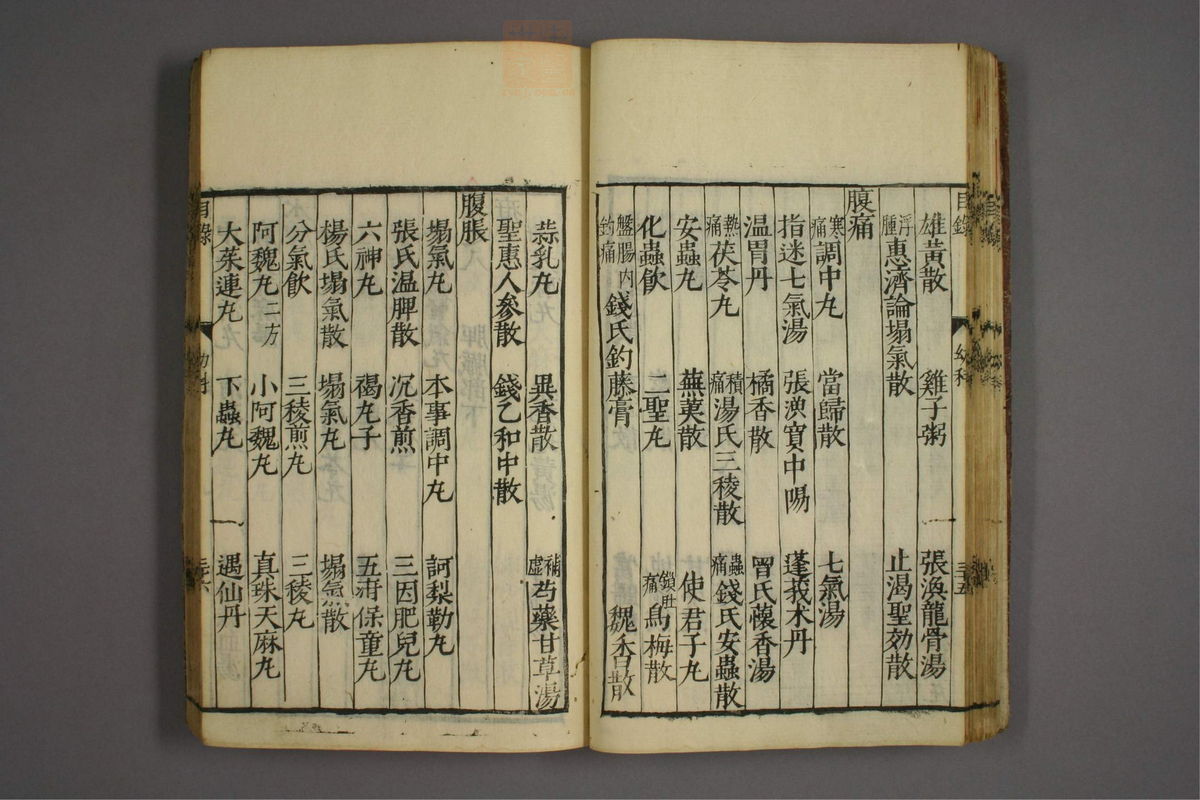 目錄 幼科 三十五
雄黃散 雞子粥 張渙龍骨湯
浮腫惠濟論塌氣散 止渴聖効散
腹痛
寒痛調中丸 當歸散 七氣湯
指迷七氣湯 張渙寶中陽 蓬莪朮丹
温胃丹 橘香散 曾氏懷香湯
熱痛茯苓丸 積痛湯氏三稜散 蟲痛錢氏安蟲散
安蟲丸 蕪荑散 使君子丸
化蟲飲 二聖丸 鎖肚痛烏梅散
盤腸內釣痛錢氏釣藤膏 魏香散
蒜乳丸 異香散 補虛芍藥甘草湯
聖惠人參散 錢乙和中散
腹脹
塌氣丸 本事調中丸 訶梨勒丸
張氏温脾散 沉香煎 三因肥兒丸
六神丸 褐丸子 五府保童丸
楊氏塌氣散 塌氣丸 塌氣散
分氣飲 三稜煎丸 三稜丸
阿魏丸二方 小阿魏丸 真珠天麻丸
大茱連丸 下蟲丸 遇仙丹
目錄 幼科 三十六